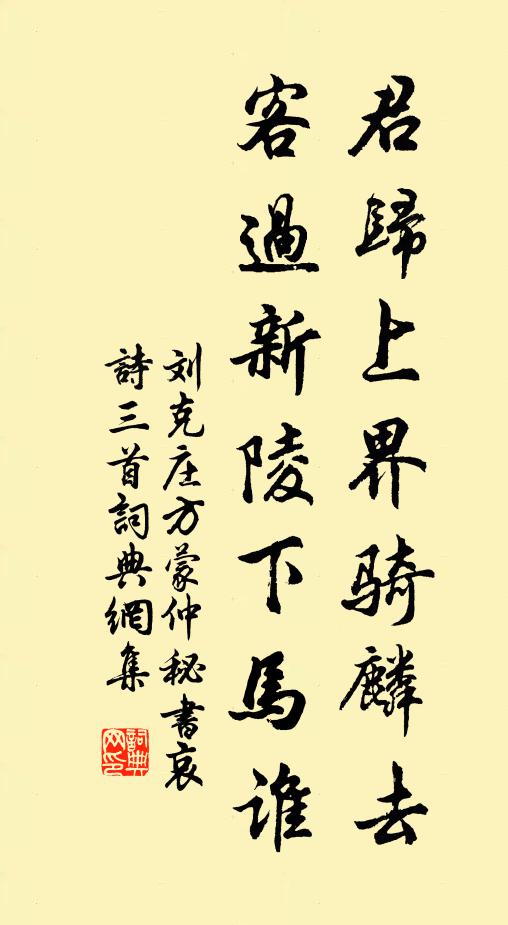 君歸上界骑麟去
客過新陵下馬谁
刘克庄方蒙仲秘書哀
詩三首詞典網集
詞典
网印